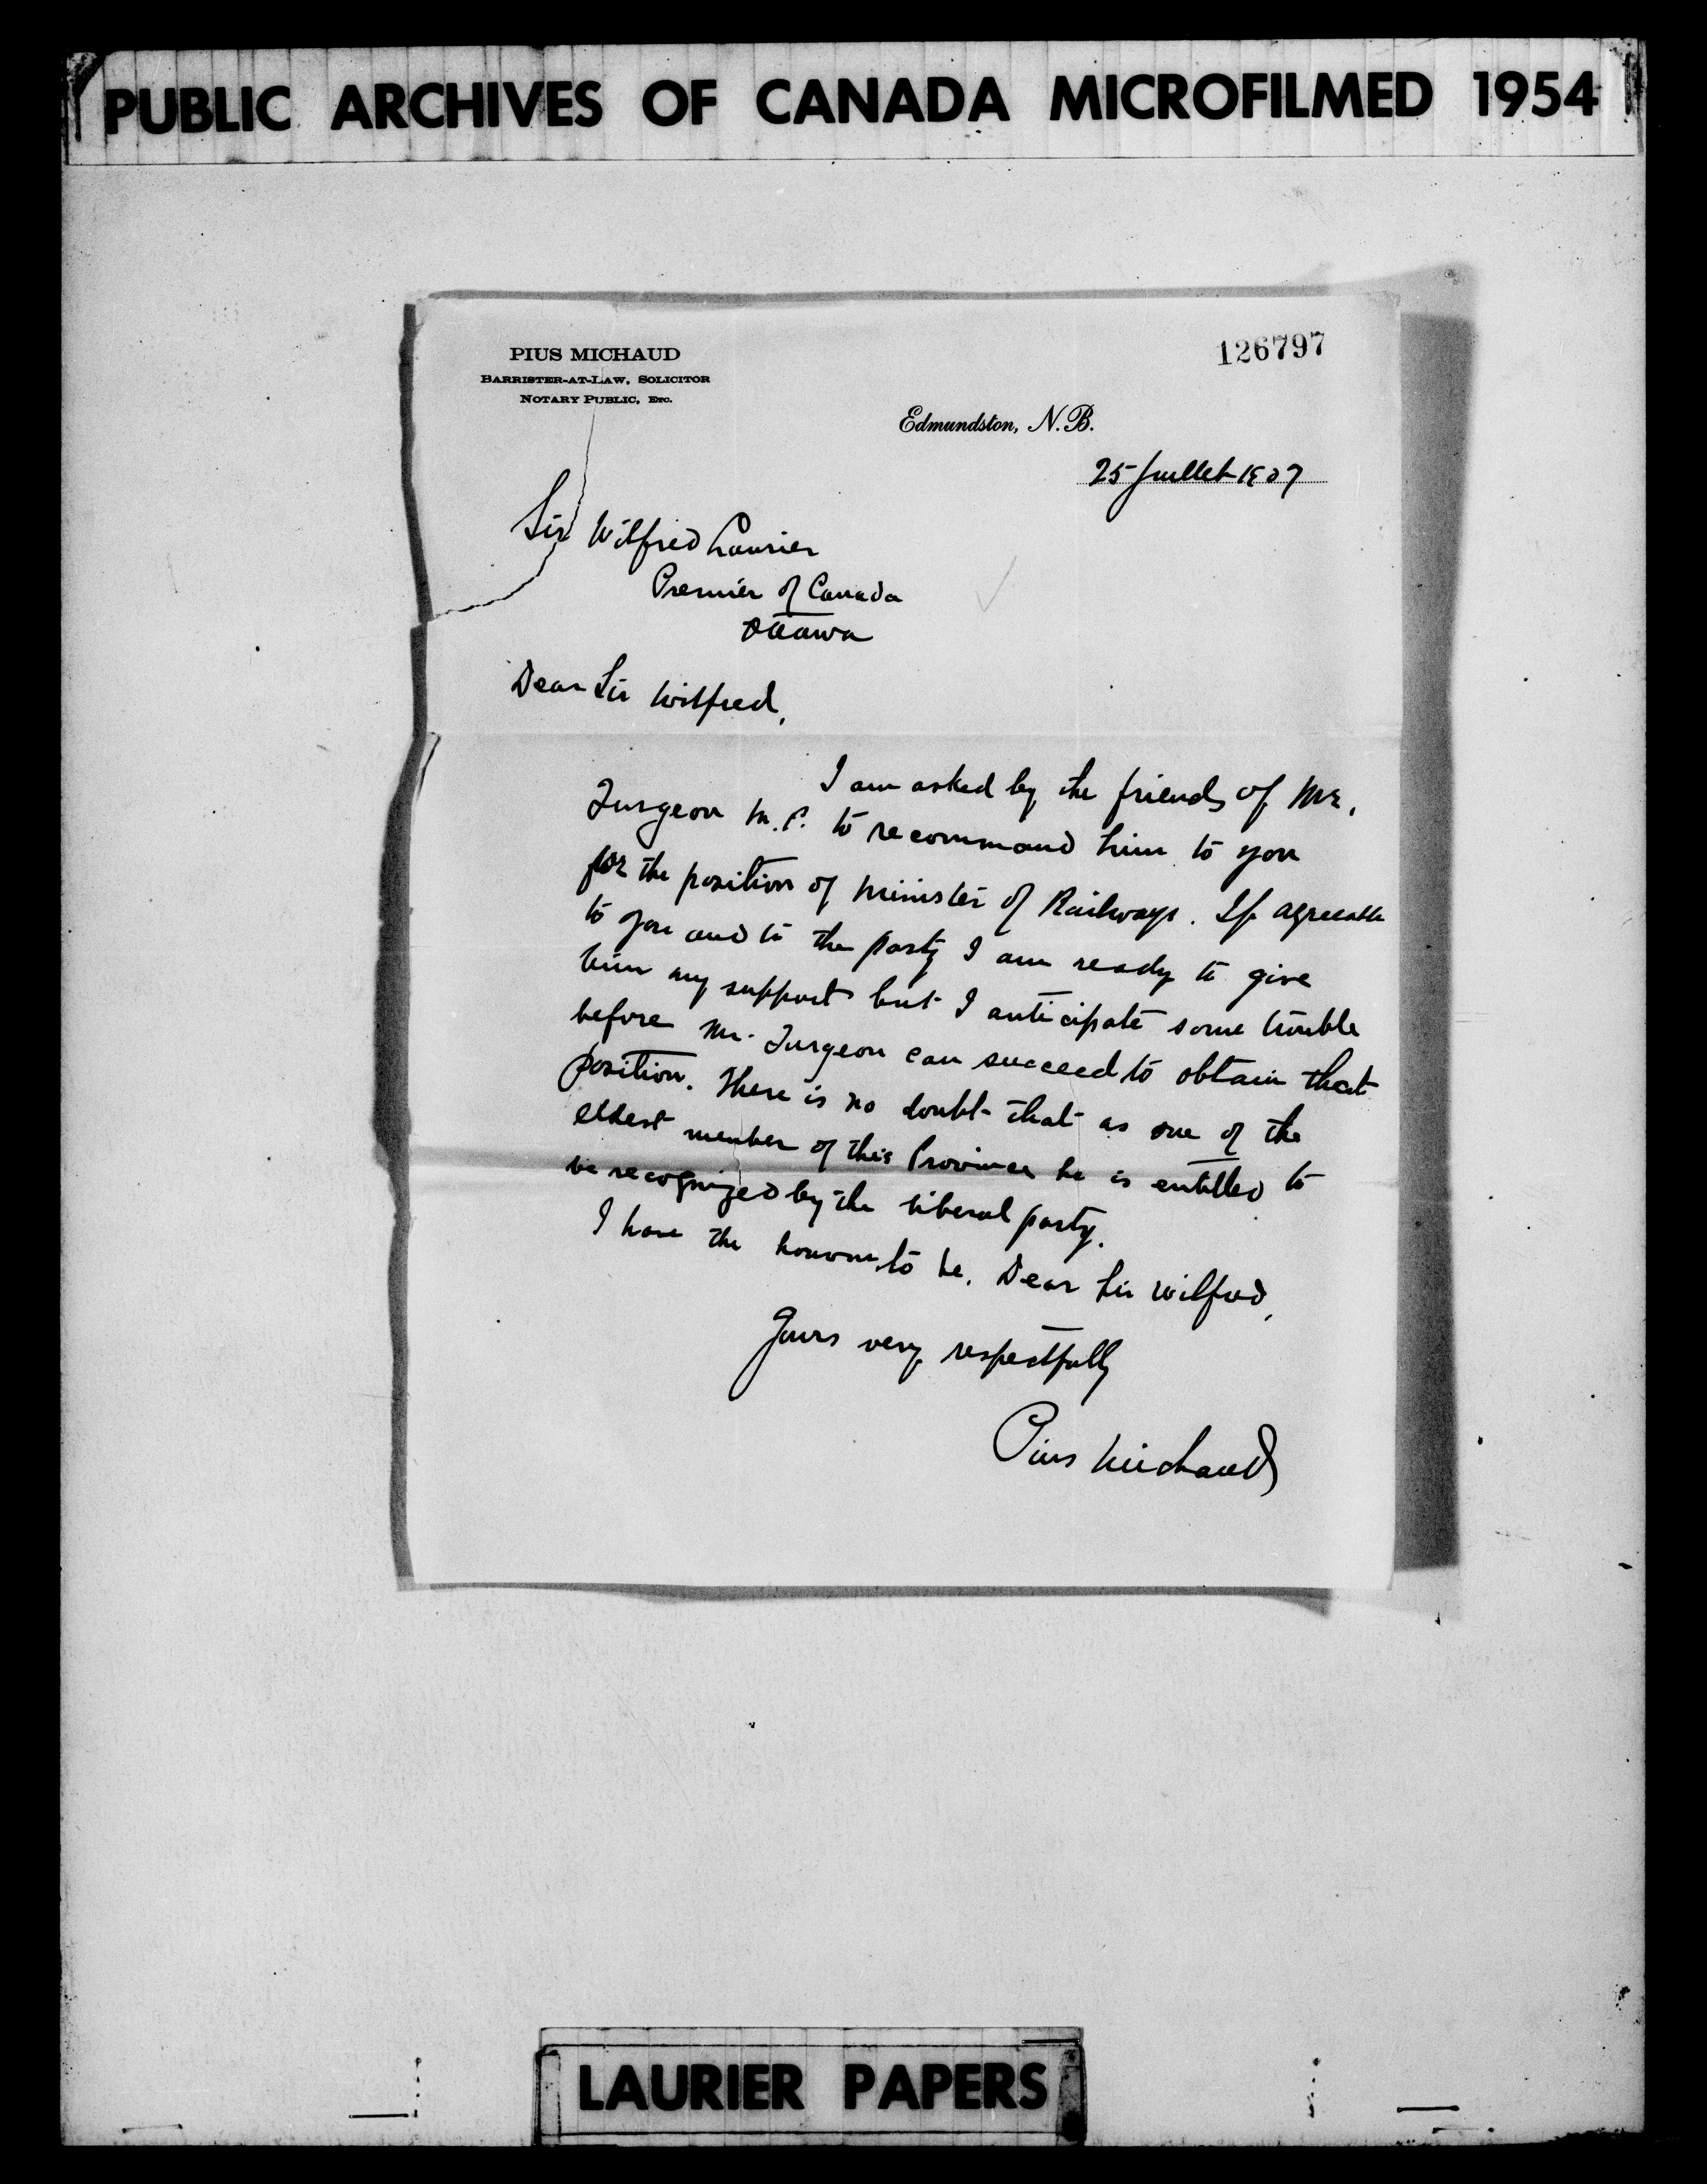 PUBLIC ARCHIVES OF CANADA MICROFILMED 1954
126797
PIUS MICHAUD
BARRISTER-AT-LAW, SOLICITOR
NOTARY PUBLIC, ETC.
Edmundston, N.B.
25 Juillet 1907
Sir Wilfred Laurier
Premier of Canada
Ottawa
Dear Sir Wilfred,
I am asked by the friends of Mr.
Turgeon M.P. to recommand him to you
for the position of Minister of Railways. If agreeable
to you and to the party I am ready to give
him my support but I anticipate some trouble
before Mr. Turgeon can succeed to obtain that
position. There is no doubt that as one of the
eldest member of this Province he is entitled to
be recognized by the liberal party.
I have the honour to be, Dear Sir Wilfred,
Yours very respectfully
Pius Michaud
LAURIER PAPERS